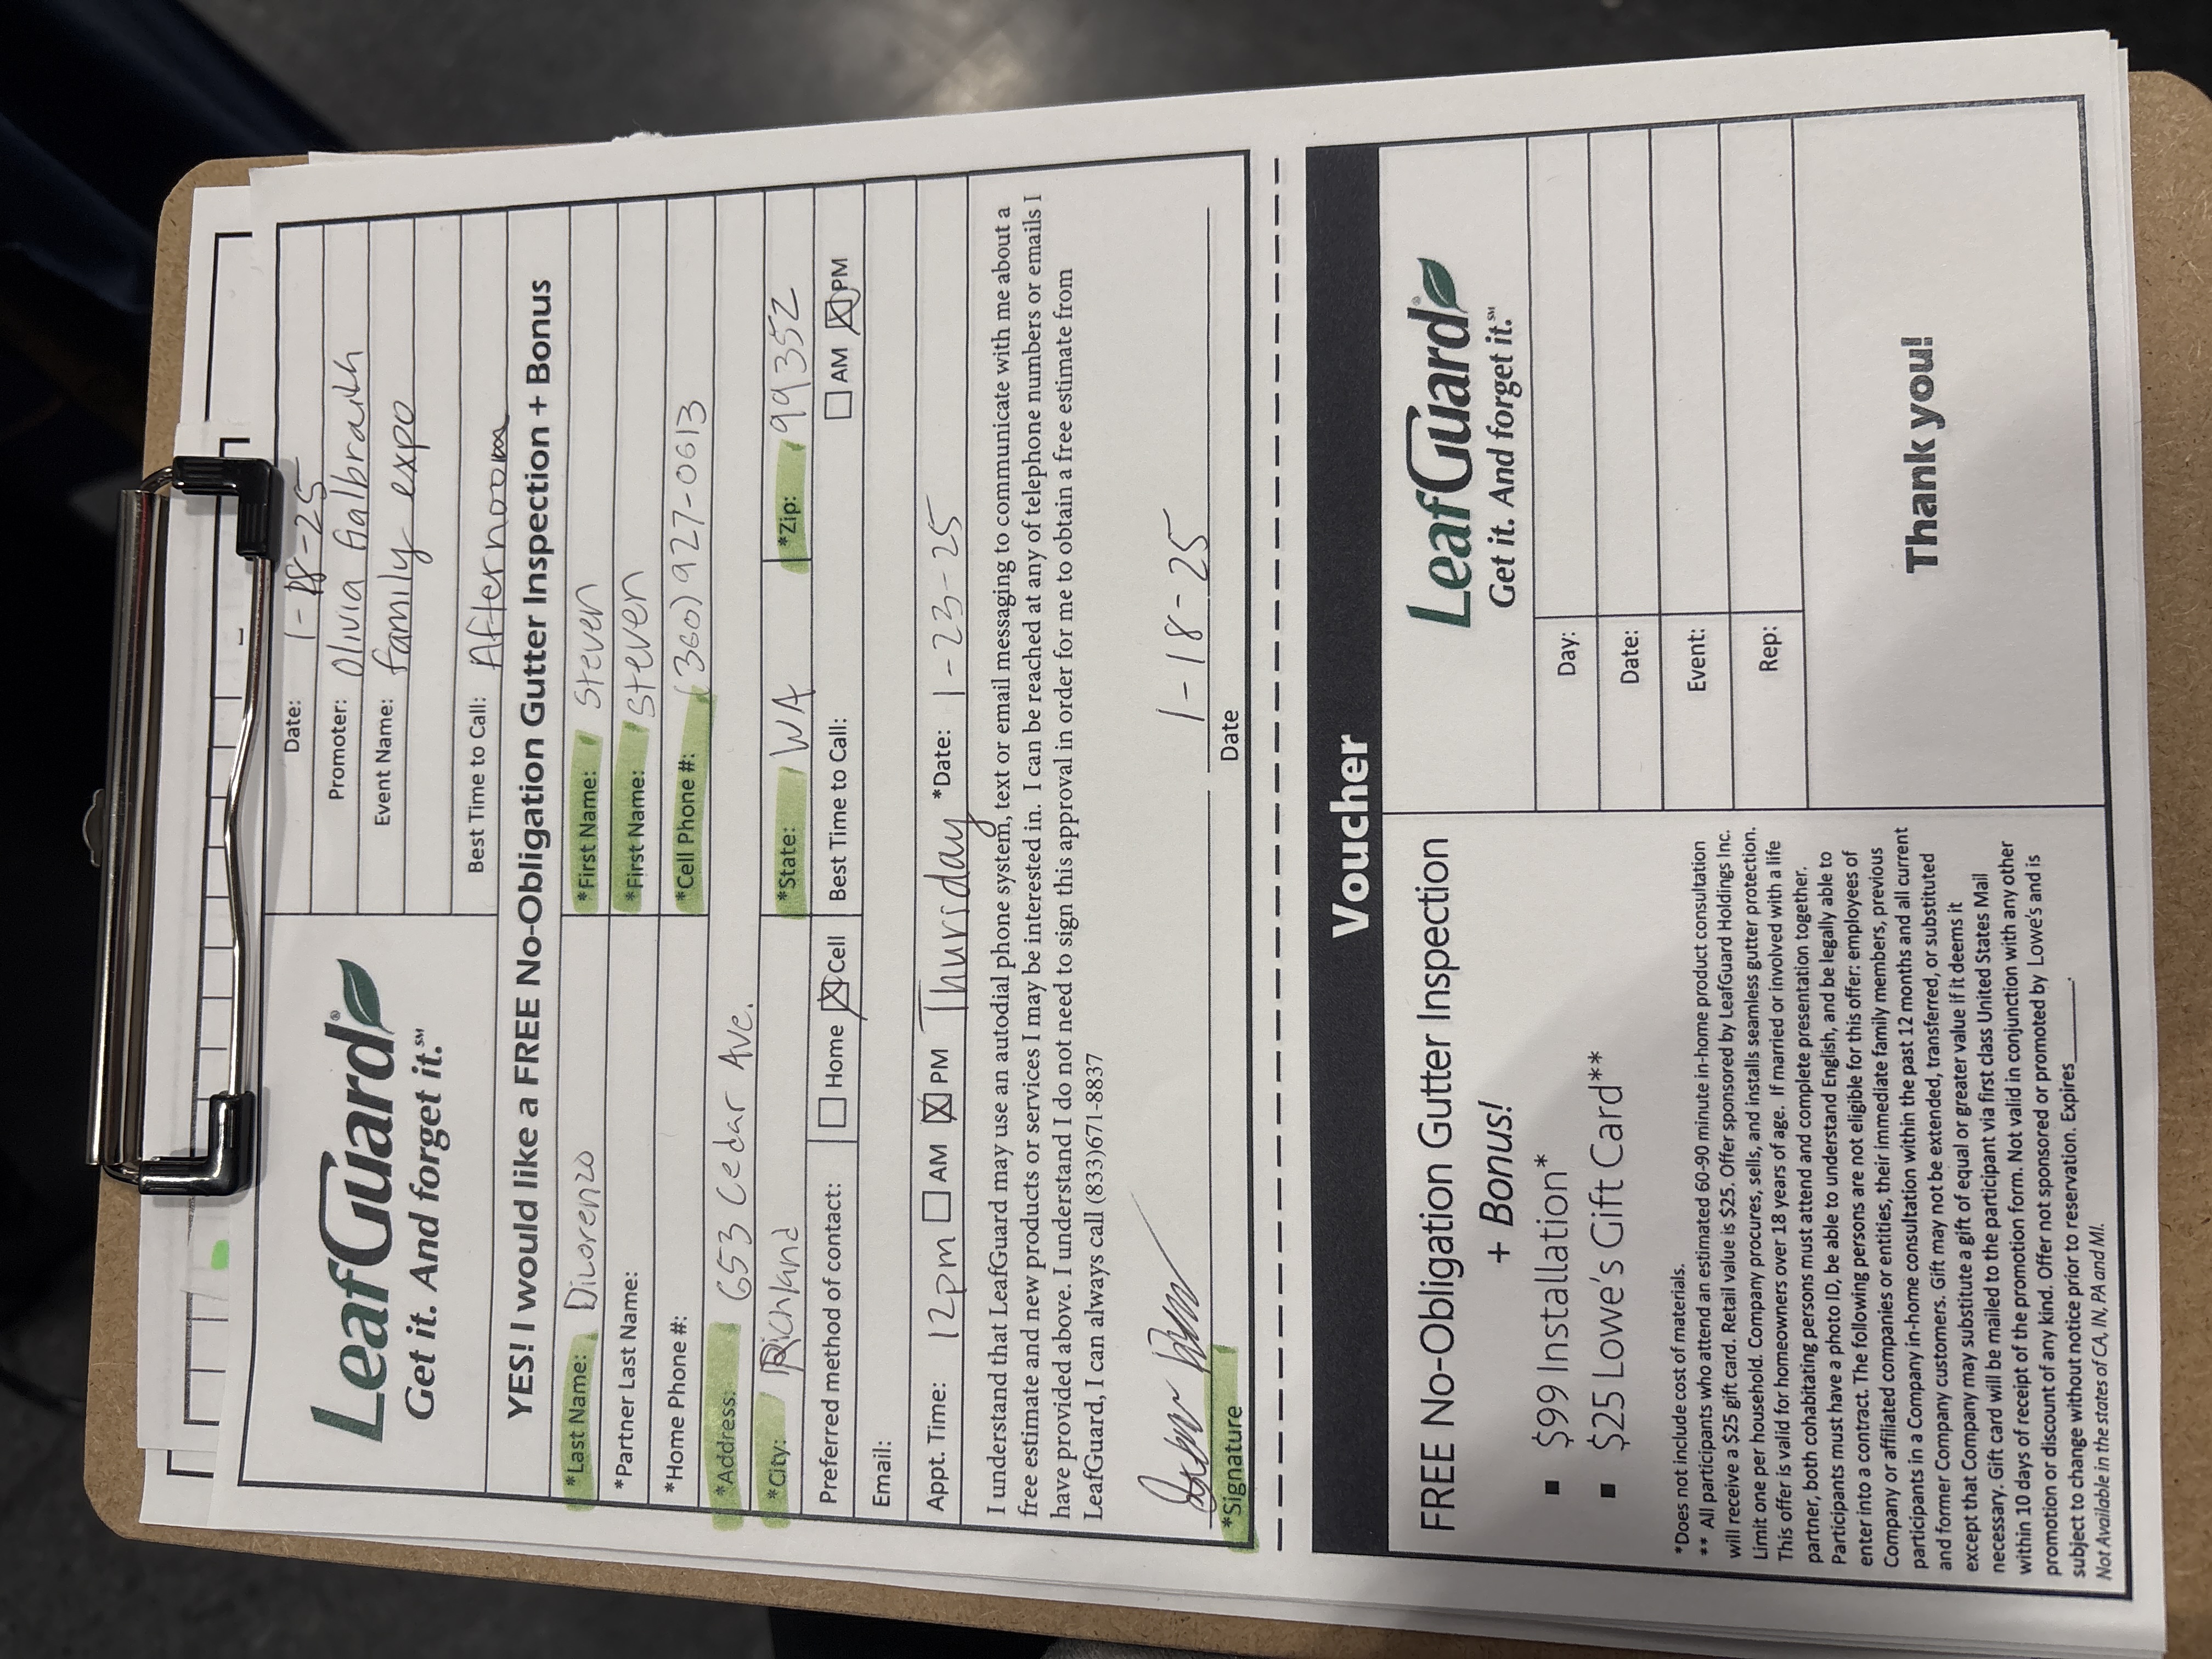 LeafGuard®
Get it. And forget it.℠
Date: 1-18-25
Promoter: Olivia Galbraith
Event Name: family expo
Best Time to Call: Afternoon
YES! I would like a FREE No-Obligation Gutter Inspection + Bonus
*Last Name: DiLorenzo *First Name: Steven
*Partner Last Name: *First Name: Steven
*Home Phone #: *Cell Phone #: (360) 927-0613
*Address: 653 Cedar Ave.
*City: Richland *State: WA *Zip: 99352
Preferred method of contact: Home Cell Best Time to Call: AM PM
Email:
Appt. Time: 12pm AM PM Thursday *Date: 1-23-25
I understand that LeafGuard may use an autodial phone system, text or email messaging to communicate with me about a
free estimate and new products or services I may be interested in. I can be reached at any of telephone numbers or emails I
have provided above. I understand I do not need to sign this approval in order for me to obtain a free estimate from
LeafGuard, I can always call (833)671-8837
1-18-25
*Signature Date
Voucher
FREE No-Obligation Gutter Inspection
+ Bonus!
▪ $99 Installation*
▪ $25 Lowe's Gift Card**
*Does not include cost of materials.
** All participants who attend an estimated 60-90 minute in-home product consultation
will receive a $25 gift card. Retail value is $25. Offer sponsored by LeafGuard Holdings Inc.
Limit one per household. Company procures, sells, and installs seamless gutter protection.
This offer is valid for homeowners over 18 years of age. If married or involved with a life
partner, both cohabitating persons must attend and complete presentation together.
Participants must have a photo ID, be able to understand English, and be legally able to
enter into a contract. The following persons are not eligible for this offer: employees of
Company or affiliated companies or entities, their immediate family members, previous
participants in a Company in-home consultation within the past 12 months and all current
and former Company customers. Gift may not be extended, transferred, or substituted
except that Company may substitute a gift of equal or greater value if it deems it
necessary. Gift card will be mailed to the participant via first class United States Mail
within 10 days of receipt of the promotion form. Not valid in conjunction with any other
promotion or discount of any kind. Offer not sponsored or promoted by Lowe's and is
subject to change without notice prior to reservation. Expires________.
Not Available in the states of CA, IN, PA and MI.
LeafGuard®
Get it. And forget it.℠
Day:
Date:
Event:
Rep:
Thank you!